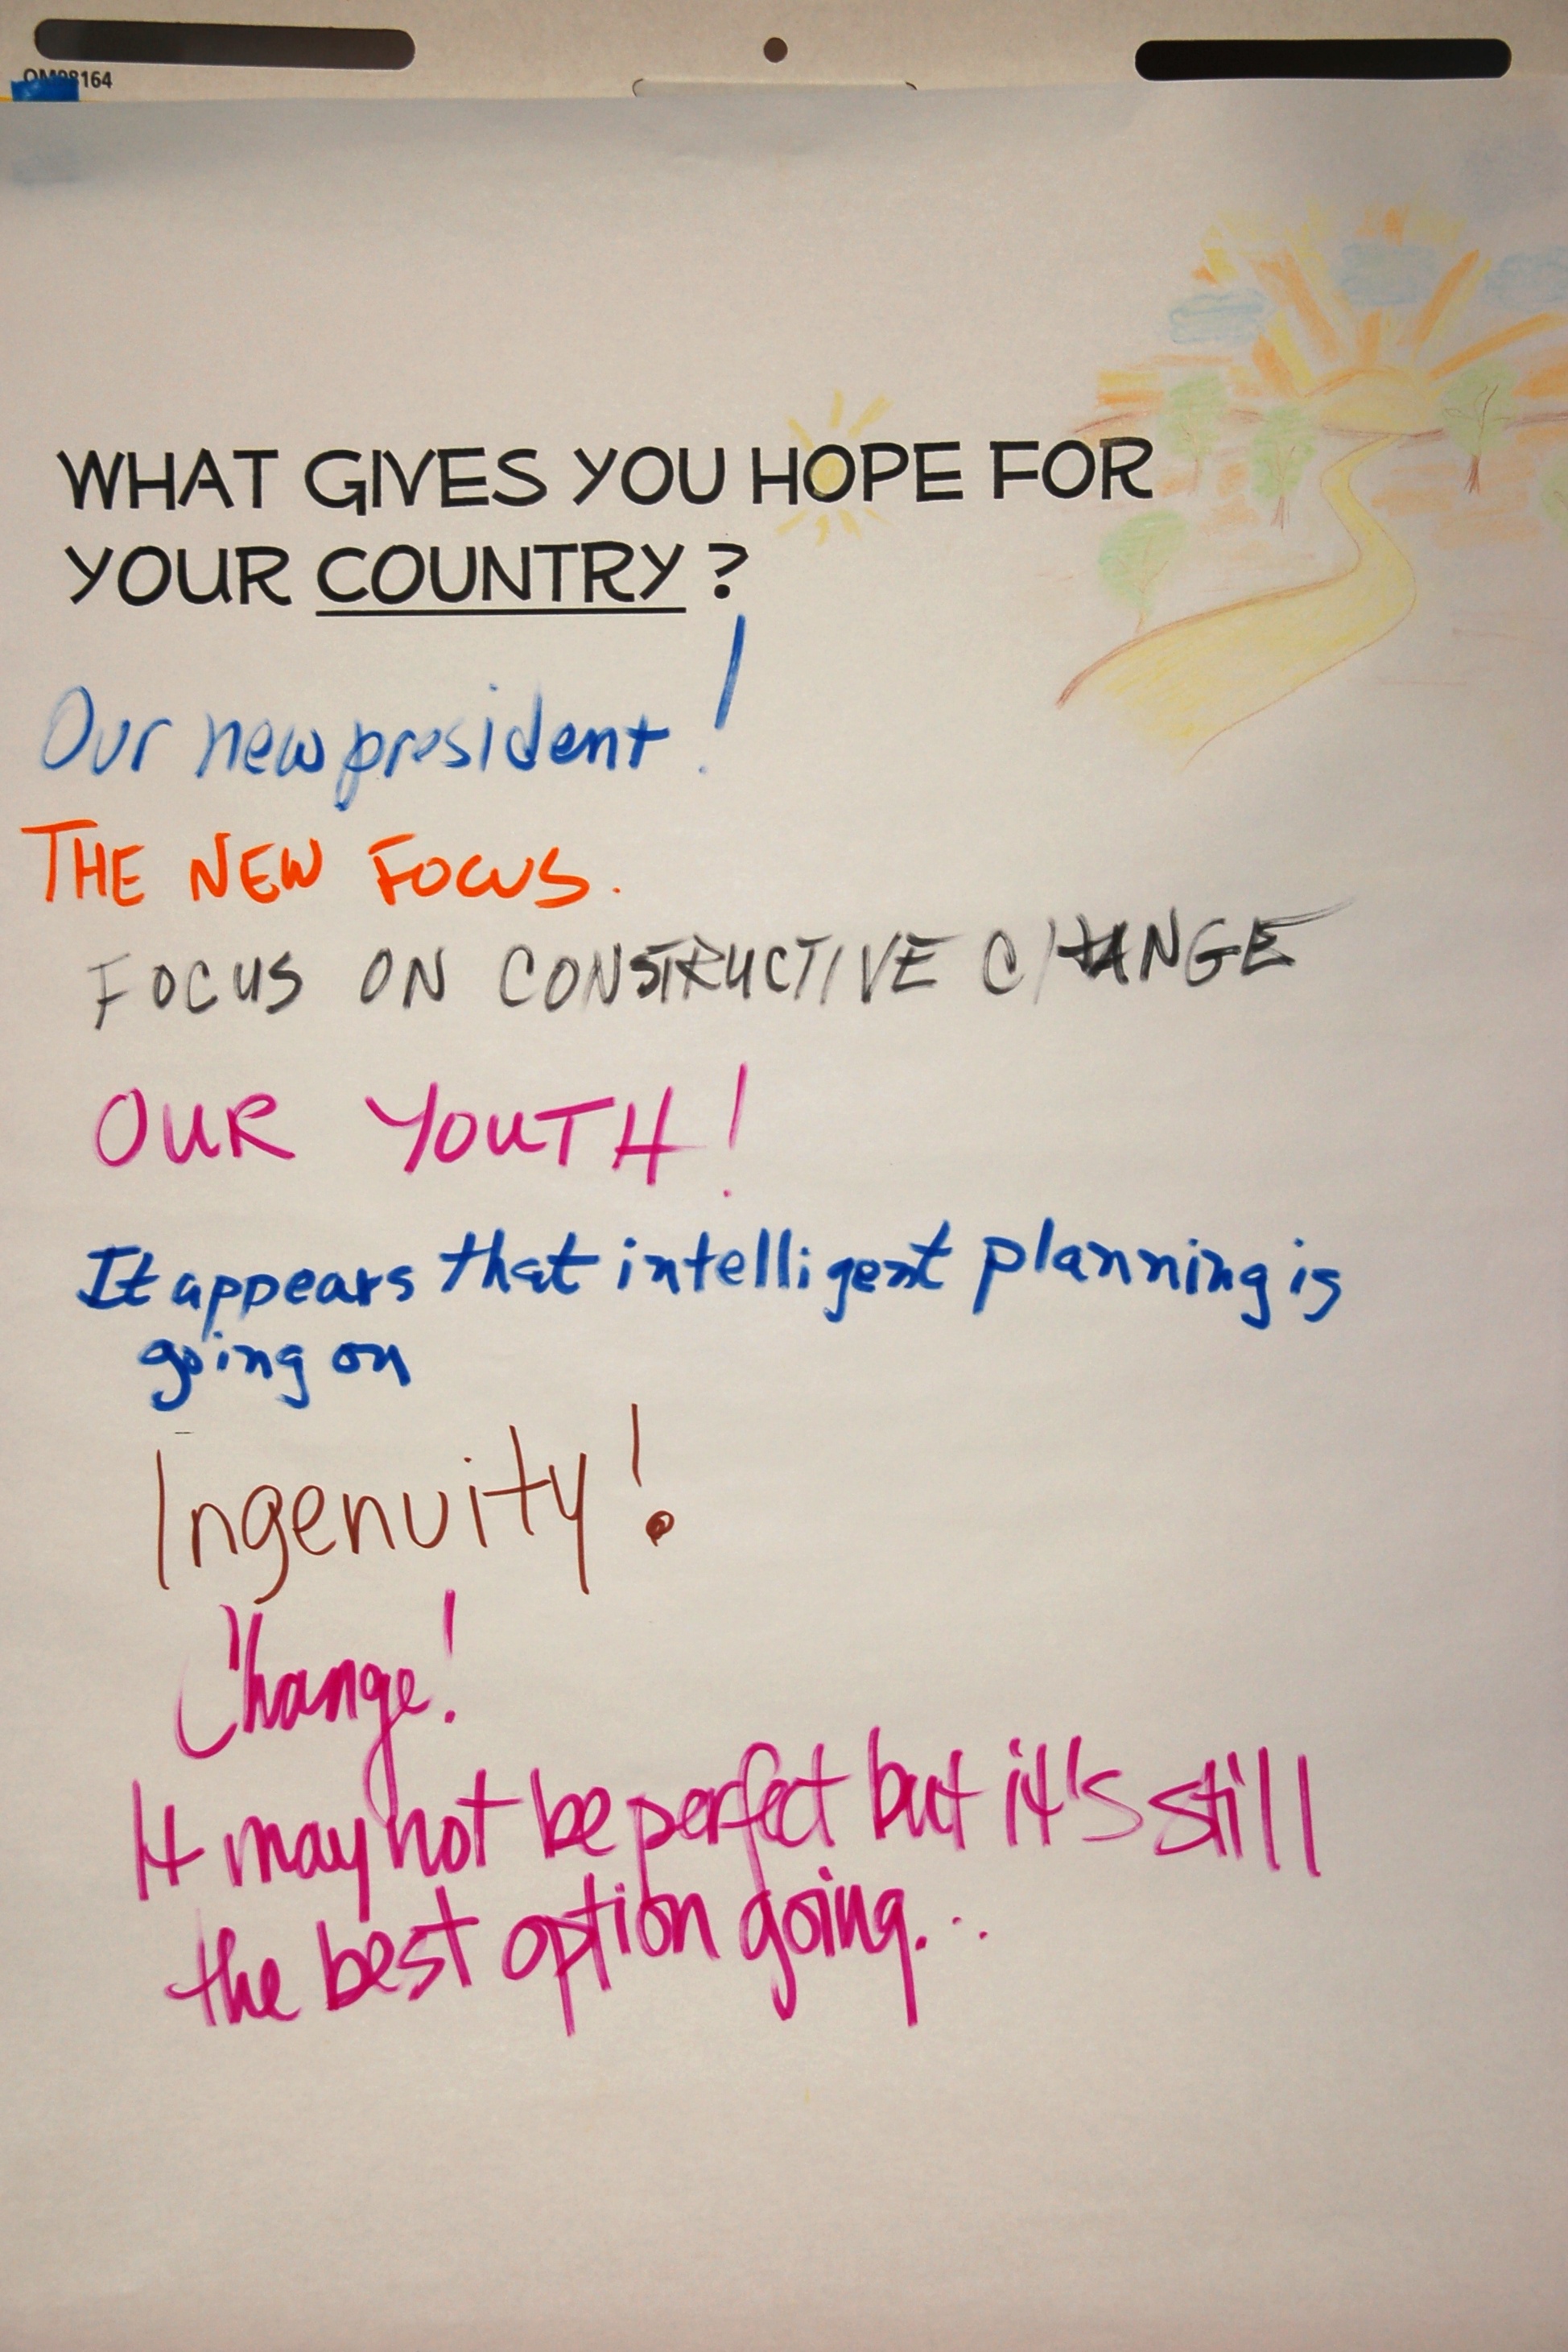 WHAT GIVES YOU HOPE FOR
YOUR COUNTRY?
Our new president!
THE NEW FOCUS.
FOCUS ON CONSTRUCTIVE CHANGE
OUR YOUTH!
It appears that intelligent planning is
going on
Ingenuity!
Change!
It may not be perfect but it's still
the best option going...